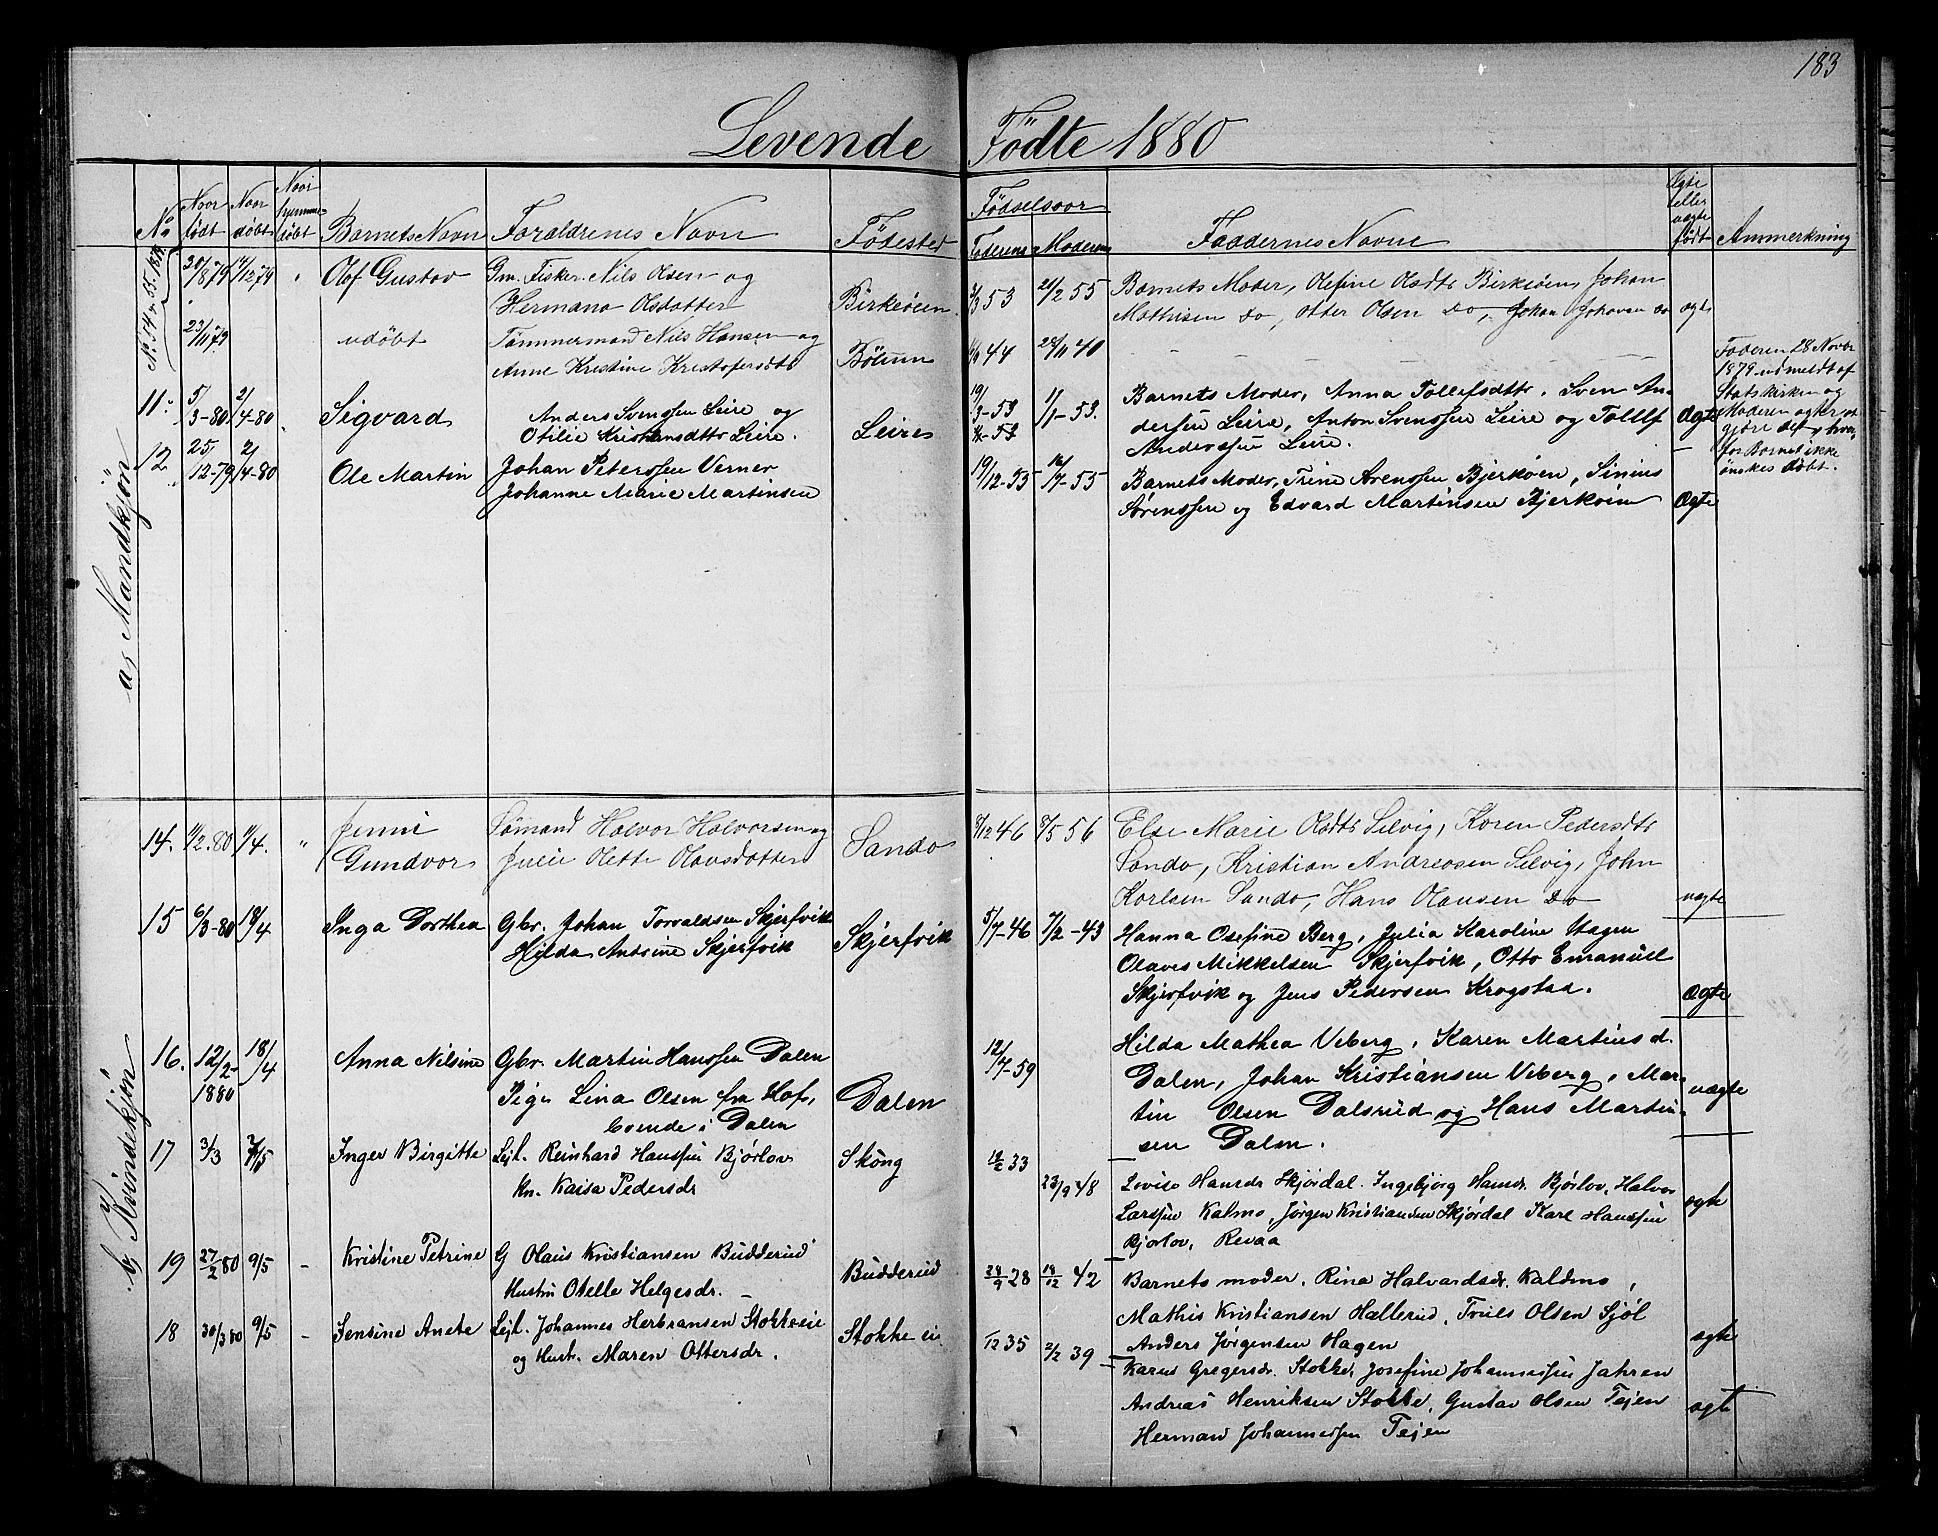 183
Levende Fødte 1880
No
Naar født
Naar døbt
Naar hjemmedøbt
Barnets Navn
Forældrenes Navn
Fødested
Fødselsaar
Faderens
Moderens
Faddernes Navne
Ægte eller uægte født
Anmerkning
a, Mandkjøn
No. 54 & 55. 1879
20/8 79 14/12 79 " Olof Gustav Gm. Fisker Nils Olsen og
Hermana Olsdatter Birkeøien
3/3 53 20/2 55 Barnets Moder, Olefine Olsdtr Birkeøien, Johan
Mathisen do, Otter Olsen do, Johan Johansen do ægte
23/11 79 udøbt Tømmermand Nils Hansen og
Anne Kristine Kristofersdtr Bölum
44 28/11 40
Faderen 28 Novbr
1879 udmeldt af
Statskirken og
Moderen agter at
gjøre det, hvor-
for Barnet ikke
ønskes døbt.
11. 5/3-80 2/4-80 Sigvard Anders Svenssen Leire og
Otilie Kristiansdttr Leire. Leire
19/3-53 1/1-53. Barnets Moder, Anna Tollefsdttr. Sven An-
dersen Leire, Anton Svenssen Leire og Tollef
Anderssen Leire. Ægte
12 25/12-79 2/4-80 Ole Martin Johan Peterssen Verner
Johanne Marie Martinsen
19/12-55 16/7-55 Barnets Moder, Trine Sørenssen Bjerkøen, Sinius
Sørenssen og Edvard Martinsen Bjerköen Ægte
b, Kvindekjøn
14. 11/2 80 9/4. " Jenni
Gundvor Sømand Halvor Halvorsen og
Julie Olette Olavsdatter Sando
8/12 46 8/5 56 Else Marie Olsdtr Selvig, Karen Pedersdtr
Sando, Kristian Andreasen Selvig, John
Karlsen Sando, Hans Olausen do uægte
15 6/3-80 18/4 Inga Dorthea Gbr. Johan Torvaldsen Skjerfvik
Hilda Antrine Skjerfvik Skjerfvik
5/7-46 7/2-43 Hanna Osefine Berg, Julia Karoline Hagen
Olaves Mikkelsen Skjerfvik, Otto Emanuel
Skjerfvik og Jens Pedersen Krogstad. Ægte
16. 12/2-1880 18/4 Anna Nilsine Gbr. Martin Hanssen Dalen
Pige Lina Olsen fra Hof,
boende i Dalen Dalen
12/7-59 Hilda Mathea Viberg, Karen Martins d.
Dalen, Johan Kristiansen Viberg, Mar-
tin Olsen Dalsrud og Hans Martin-
sen Dalen. uægte
17 3/3 7/5 Inger Birgitte Lejl. Reinhard Hanssen Bjørlov
kn. Kaisa Pedersdr Skøng
33 23/9 48 Lovise Hansdr Skjørdal. Ingebjørg Hansdr. Bjørlov, Halvor
Larssen Kalmo, Jørgen Kristiansen Skjørdal Karl Hanssen
Bjørlov, Revaa ægte
19 27/2 80 9/5 - Kristine Petrine G Olaus Kristiansen Budderud
Hustru Otelle Helgesdr. Budderud
28/9 28 18/12 42 Barnets moder, Rina Halvardsdr. Kaldmo,
Mathis Kristiansen Hallerud, Truls Olsen Sjøl
Anders Jørgensen Hagen ægte
18 30/3 80 9/5 - Jensine Anete Lejl. Johannes Herbransen Stokkeeie
og Hustr. Maren Ottersdr. Stokke ei
1/12 35 2/2 39 Karen Gregersdr. Stokke, Josefine Johannessen Jahren
Andreas Henriksen Stokke, Gustav Olsen Tejen
Herman Johannessen Tejen ægte